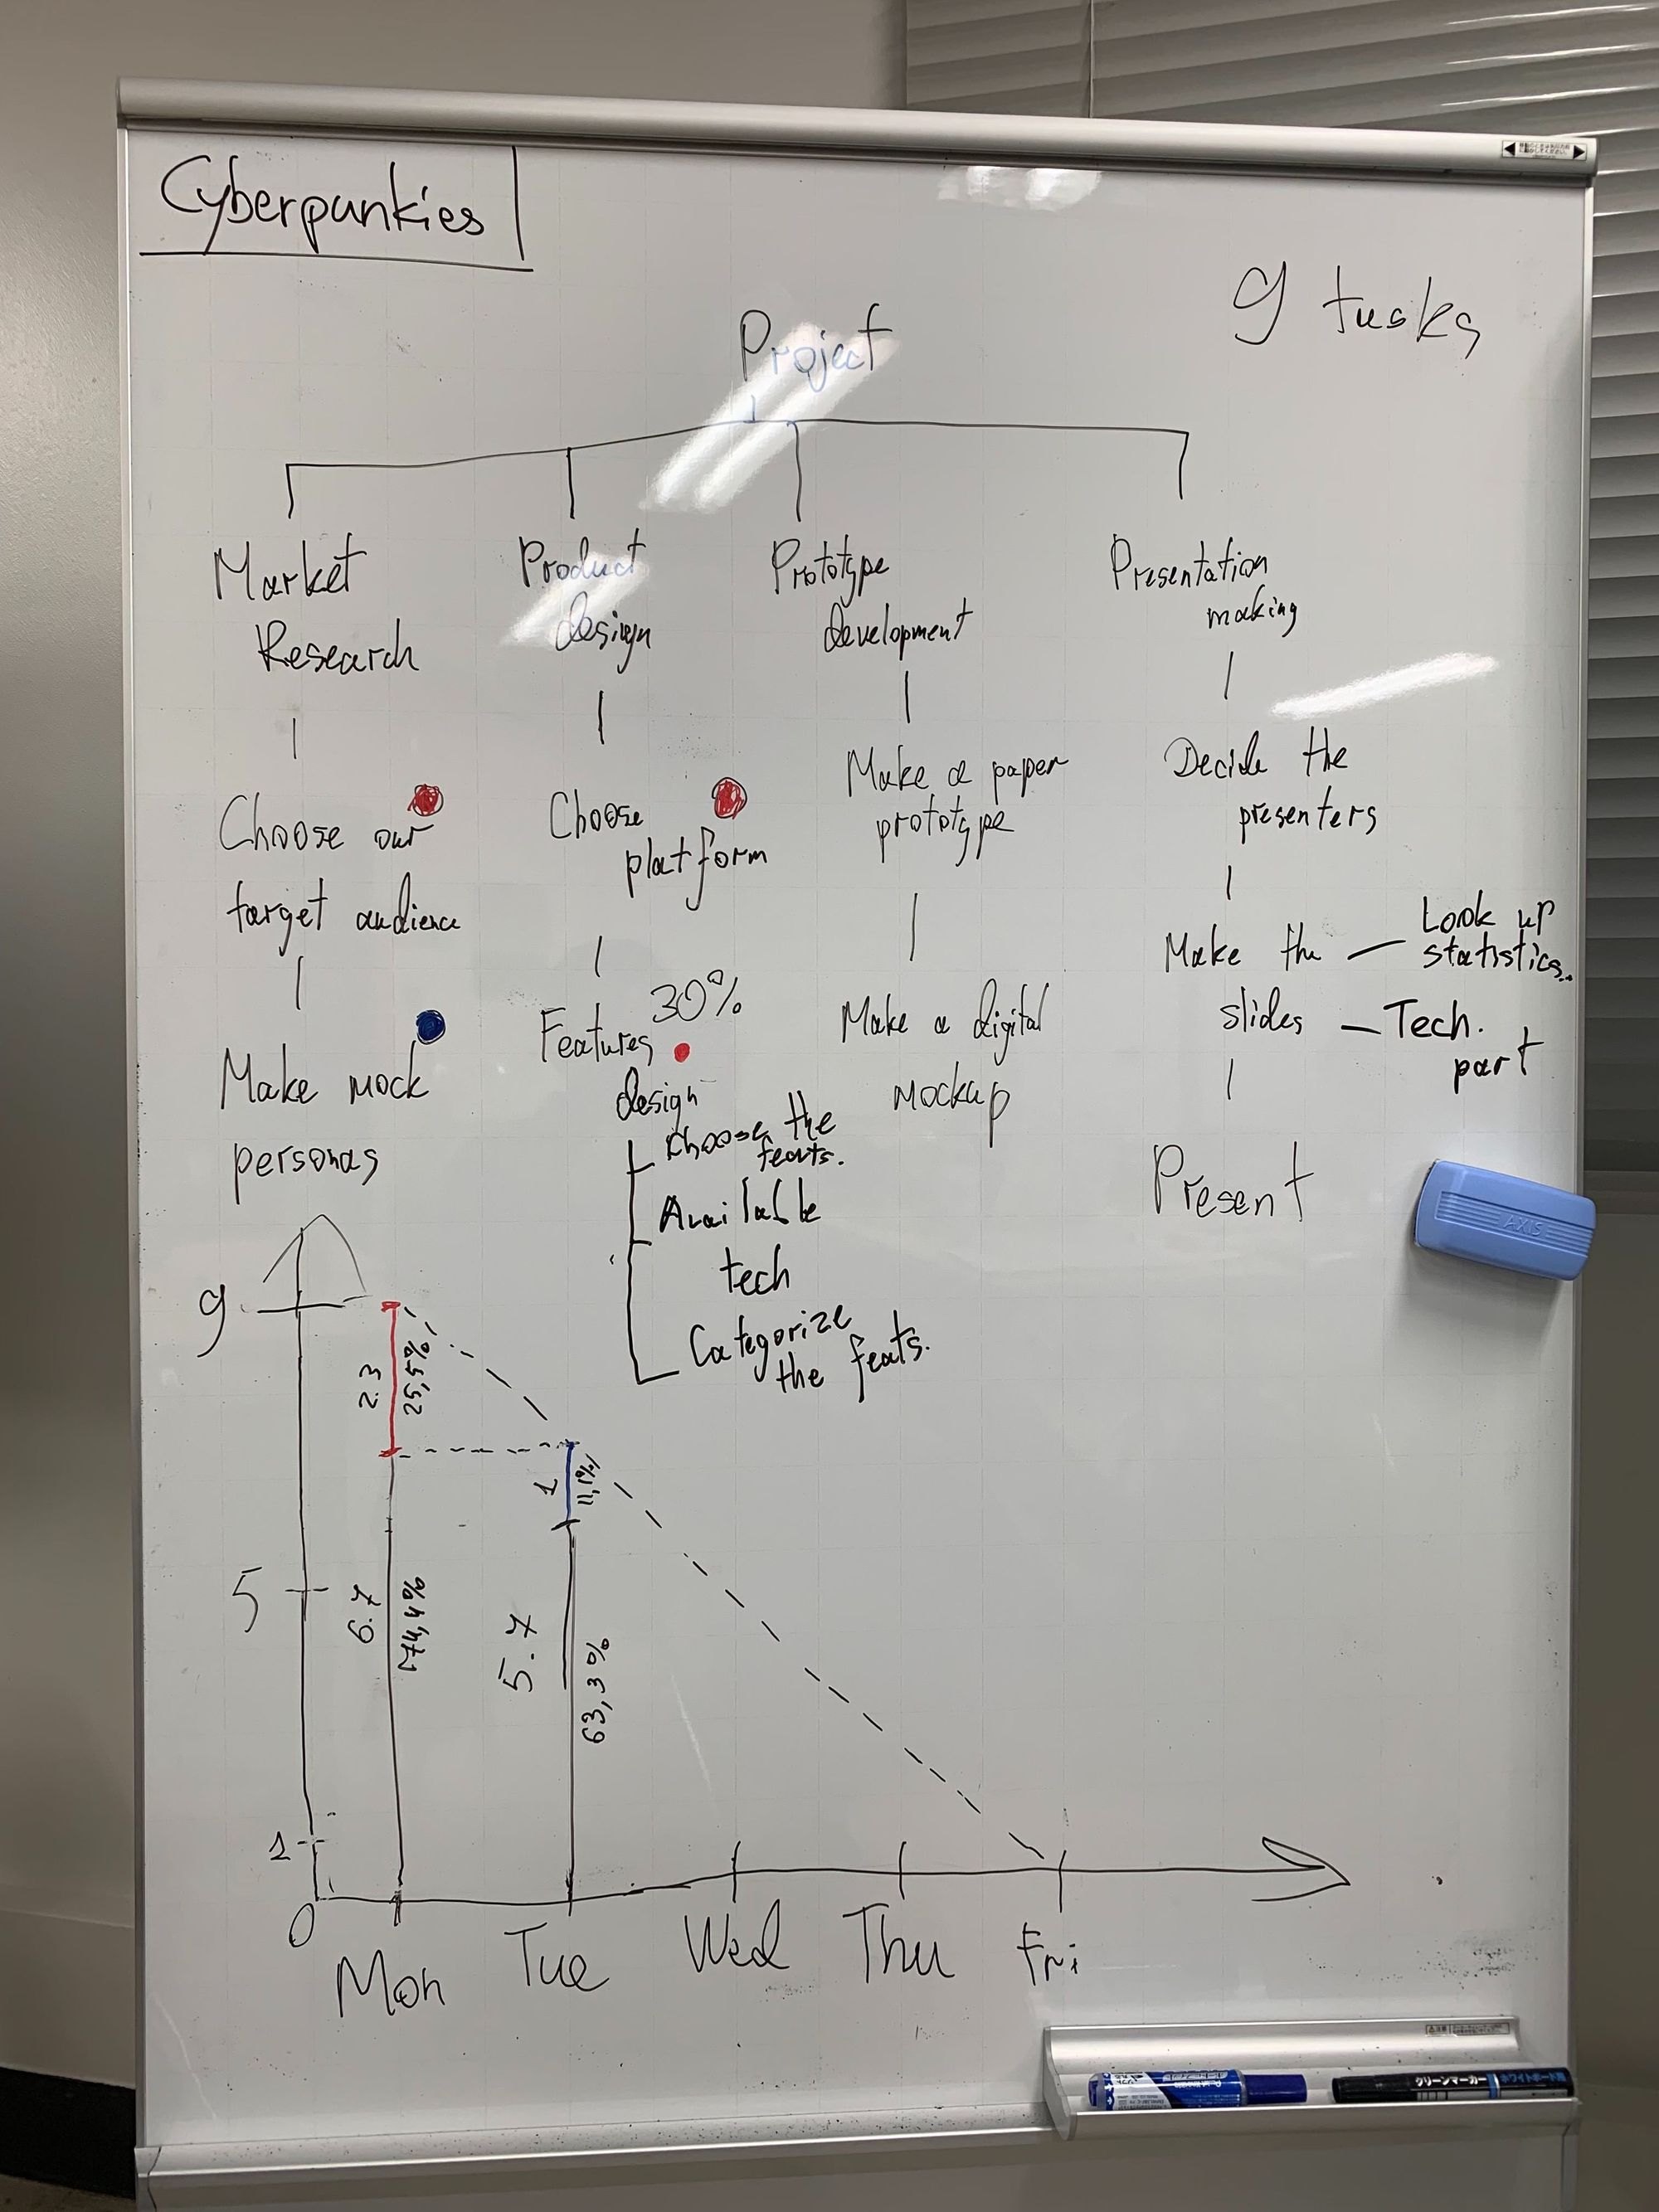 Cyberpunkies
9 tasks
Project
Market
Research
Product
design
Prototype
development
Presentation
making
Choose our
target audience
Make mock
personas
Choose
platform
30%
Features
design
Choose the
feats.
Available
tech
Categorize
the feats.
Make a paper
prototype
Make a digital
mockup
Decide the
presenters
Make the
slides
Look up
statistics..
Tech.
part
Present
AXIS
9
5
1
0
2.3
25,5%
6.7
74,4%
1
11,1%
5.7
63,3%
Mon
Tue
Wed
Thu
Fri
クリーンマーカー